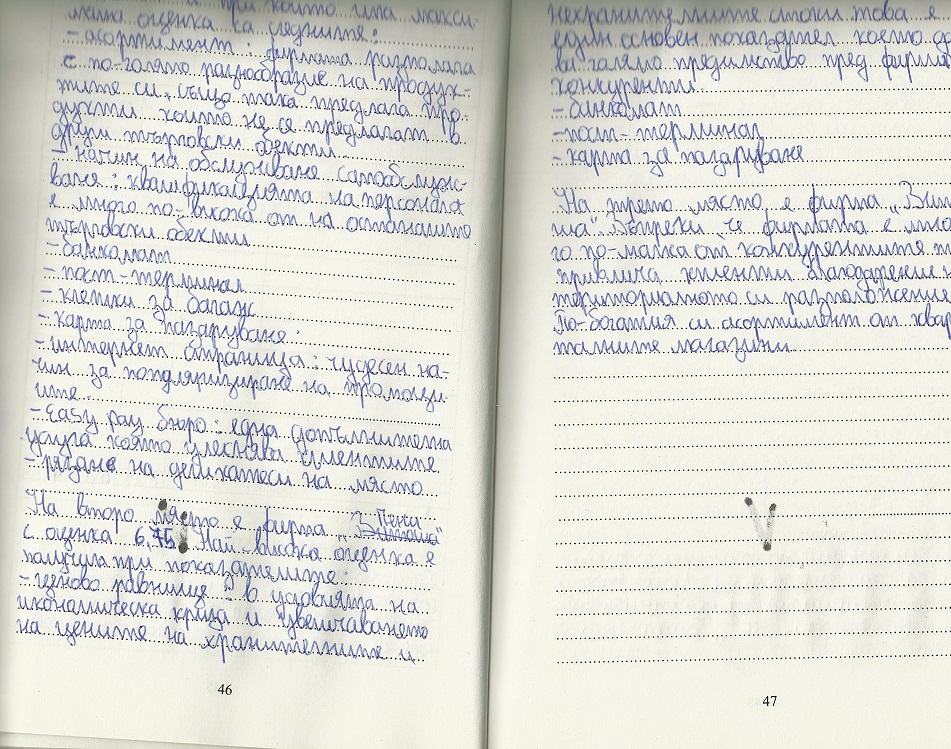 при които има макси-
мална оценка са следните:
- асортимент : фирмата разполага
с по-голямо разнообразие на продук-
тите си, също така предлага про-
дукти които не се предлагат в
други търговски обекти
- начин на обслужване самообслуж-
ване : квалификацията на персонала
е много по-висока от на останалите
търговски обекти
- банкомат
- пост-терминал
- клетки за багаж
- карта за пазаруване:
- интернет страница : чудесен на-
чин за популяризиране на промоци-
ите.
- Easy pay бюро : една допълнителна
услуга която улеснява клиентите
- рязане на деликатеси на място
На второ място е фирма „Пени"
с оценка 6,75. Най-висока оценка е
получила при показателите:
- ценово равнище : в условията на
икономическа криза и увеличаването
на цените на хранителните и
46
нехранителните стоки това е
един основен показател което да
ва голямо предимство пред фирми
конкуренти.
- банкомат
- пост-терминал
- карта за пазаруване
На трето място е фирма „
ша". Въпреки че фирмата е мно
го по-малка от конкурентите
привлича клиенти благодарение
териториалното си разположение
По-богатия си асортимент от квар
талните магазини
47